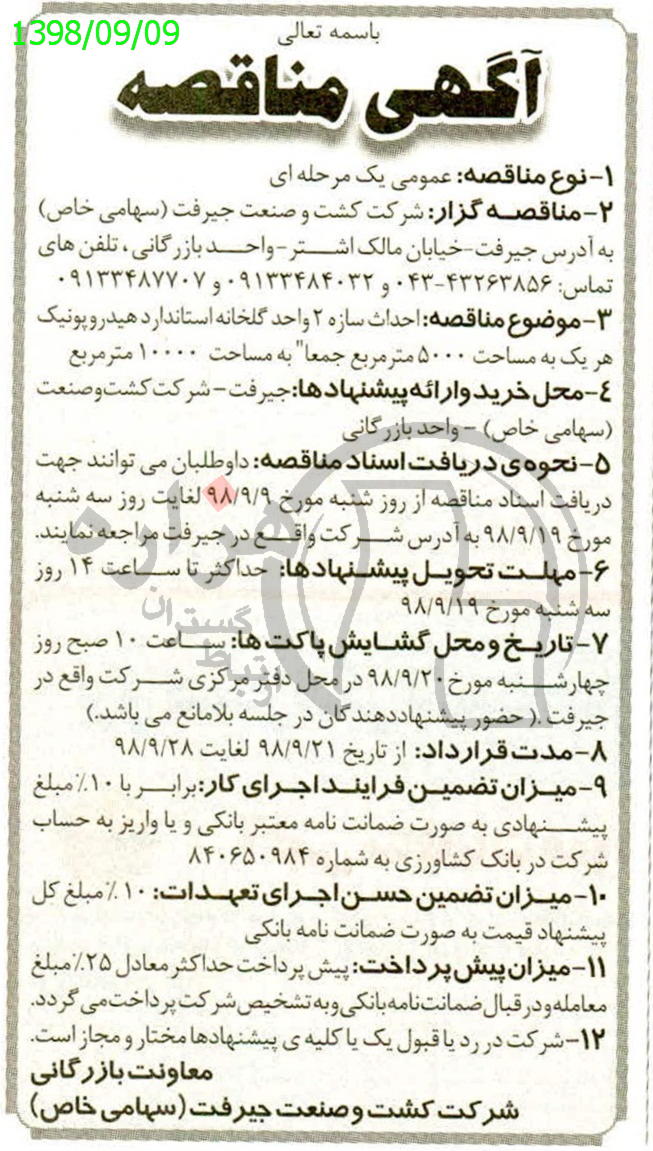 1398/09/09
باسمه تعالی
آگهی مناقصه
۱-نوع مناقصه: عمومی یک مرحله ای
۲-مناقصه گزار: شرکت کشت و صنعت جیرفت (سهامی خاص)
به آدرس جیرفت-خیابان مالک اشتر -واحد بازرگانی، تلفن های
تماس: ۴۳۲۶۳۸۵۶-۰۴۳ و ۰۹۱۳۳۴۸۴۰۳۲ و ۰۹۱۳۳۴۸۷۷۰۷
۳-موضوع مناقصه: احداث سازه ۲ واحد گلخانه استاندارد هیدروپونیک
هر یک به مساحت ۵۰۰۰ مترمربع جمعا" به مساحت ۱۰۰۰۰ مترمربع
٤-محل خرید وارائه پیشنهادها: جیرفت - شرکت کشت وصنعت
(سهامی خاص) - واحد بازرگانی
۵-نحوه ی دریافت اسناد مناقصه: داوطلبان می توانند جهت
دریافت اسناد مناقصه از روز شنبه مورخ ۹۸/۹/۹ لغایت روز سه شنبه
مورخ ۹۸/۹/۱۹ به آدرس شرکت واقع در جیرفت مراجعه نمایند.
۶-مهلت تحویل پیشنهادها: حداکثر تا ساعت ۱۴ روز
سه شنبه مورخ ۹۸/۹/۱۹
۷-تاریخ و محل گشایش پاکت ها: ساعت ۱۰ صبح روز
چهارشنبه مورخ ۹۸/۹/۲۰ در محل دفتر مرکزی شرکت واقع در
جیرفت .( حضور پیشنهاددهندگان در جلسه بلامانع می باشد.)
۸-مدت قرارداد: از تاریخ ۹۸/۹/۲۱ لغایت ۹۸/۹/۲۸
۹-میزان تضمین فرایند اجرای کار: برابر با ۱۰٪ مبلغ
پیشنهادی به صورت ضمانت نامه معتبر بانکی و یا واریز به حساب
شرکت در بانک کشاورزی به شماره ۸۴۰۶۵۰۹۸۴
۱۰-میزان تضمین حسن اجرای تعهدات: ۱۰٪ مبلغ کل
پیشنهاد قیمت به صورت ضمانت نامه بانکی
۱۱-میزان پیش پرداخت: پیش پرداخت حداکثر معادل ۲۵٪ مبلغ
معامله و در قبال ضمانت نامه بانکی و به تشخیص شرکت پرداخت می گردد.
۱۲-شرکت در رد یا قبول یک یا کلیه ی پیشنهادها مختار و مجاز است.
معاونت بازرگانی
شرکت کشت و صنعت جیرفت (سهامی خاص)
هزاره
گستران
ارتباط